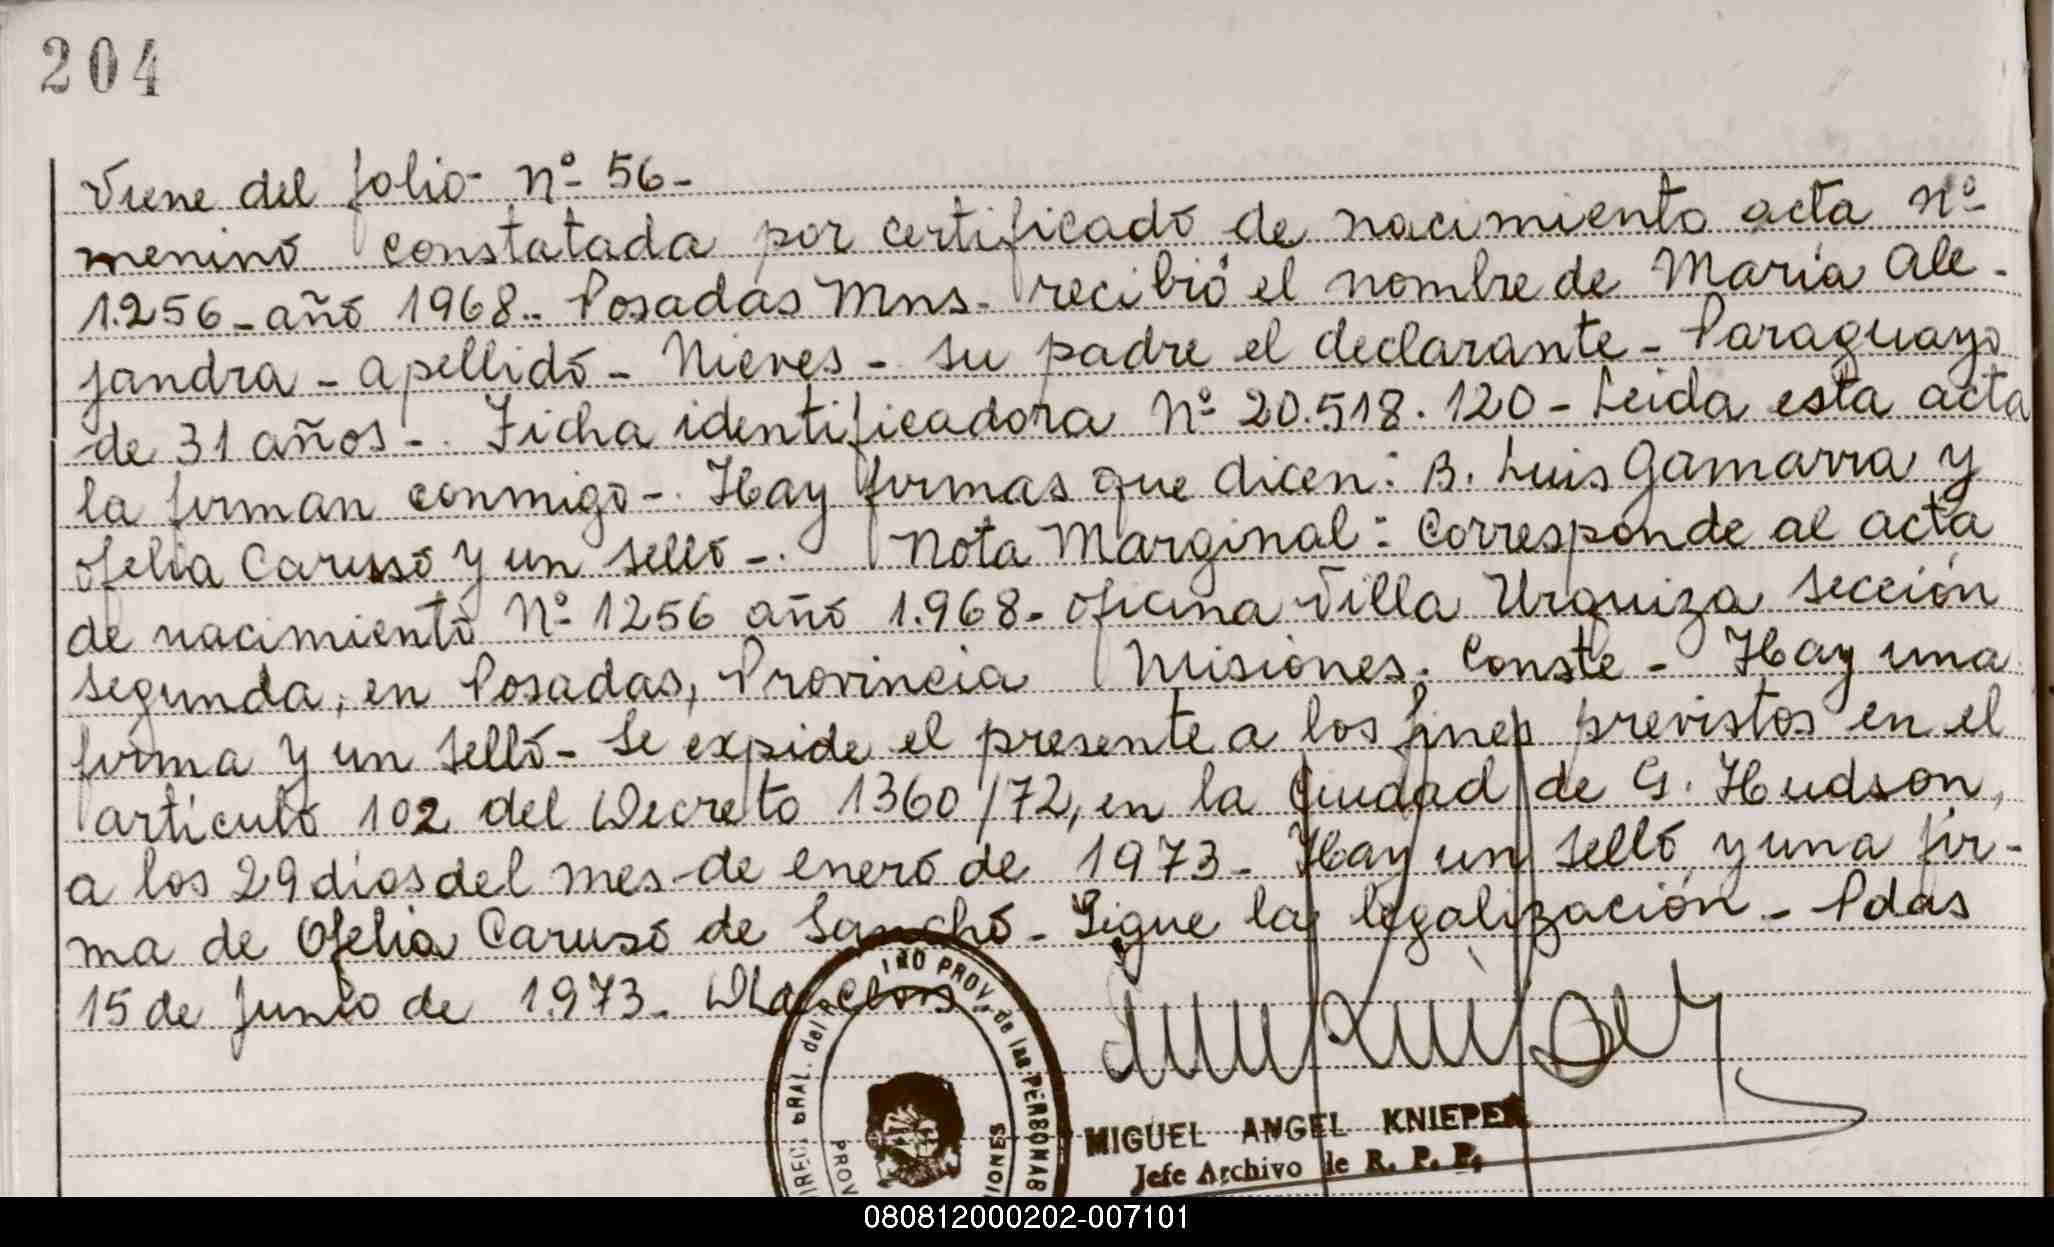 204
Viene del folio nº 56-
menino constatada por certificado de nacimiento acta nº
1.256-año 1968- Posadas Mns- recibió el nombre de María Ale-
jandra - apellido - Nieves - su padre el declarante - Paraguayo
de 31 años-. Ficha identificadora Nº 20.518.120 - Leida esta acta
la firman conmigo-. Hay firmas que dicen: B. Luis Gamarra y
Ofelia Caruso y un sello-. Nota Marginal: Corresponde al acta
de nacimiento Nº 1256 año 1.968- oficina Villa Urquiza sección
segunda, en Posadas, Provincia Misiones. Conste - Hay una
firma y un sello- Se expide el presente a los fines previstos en el
artículo 102 del Decreto 1360/72, en la Ciudad de G. Hudson,
a los 29 días del mes de enero de 1973- Hay un sello y una fir-
ma de Ofelia Caruso de Sancho - Sigue la legalización - Pdas
15 de junio de 1.973-
DIREC. GRAL. del REGISTRO PROV. de las PERSONAS
PROV
IONES
MIGUEL ANGEL KNIEPER
Jefe Archivo de R. P. P.
080812000202-007101